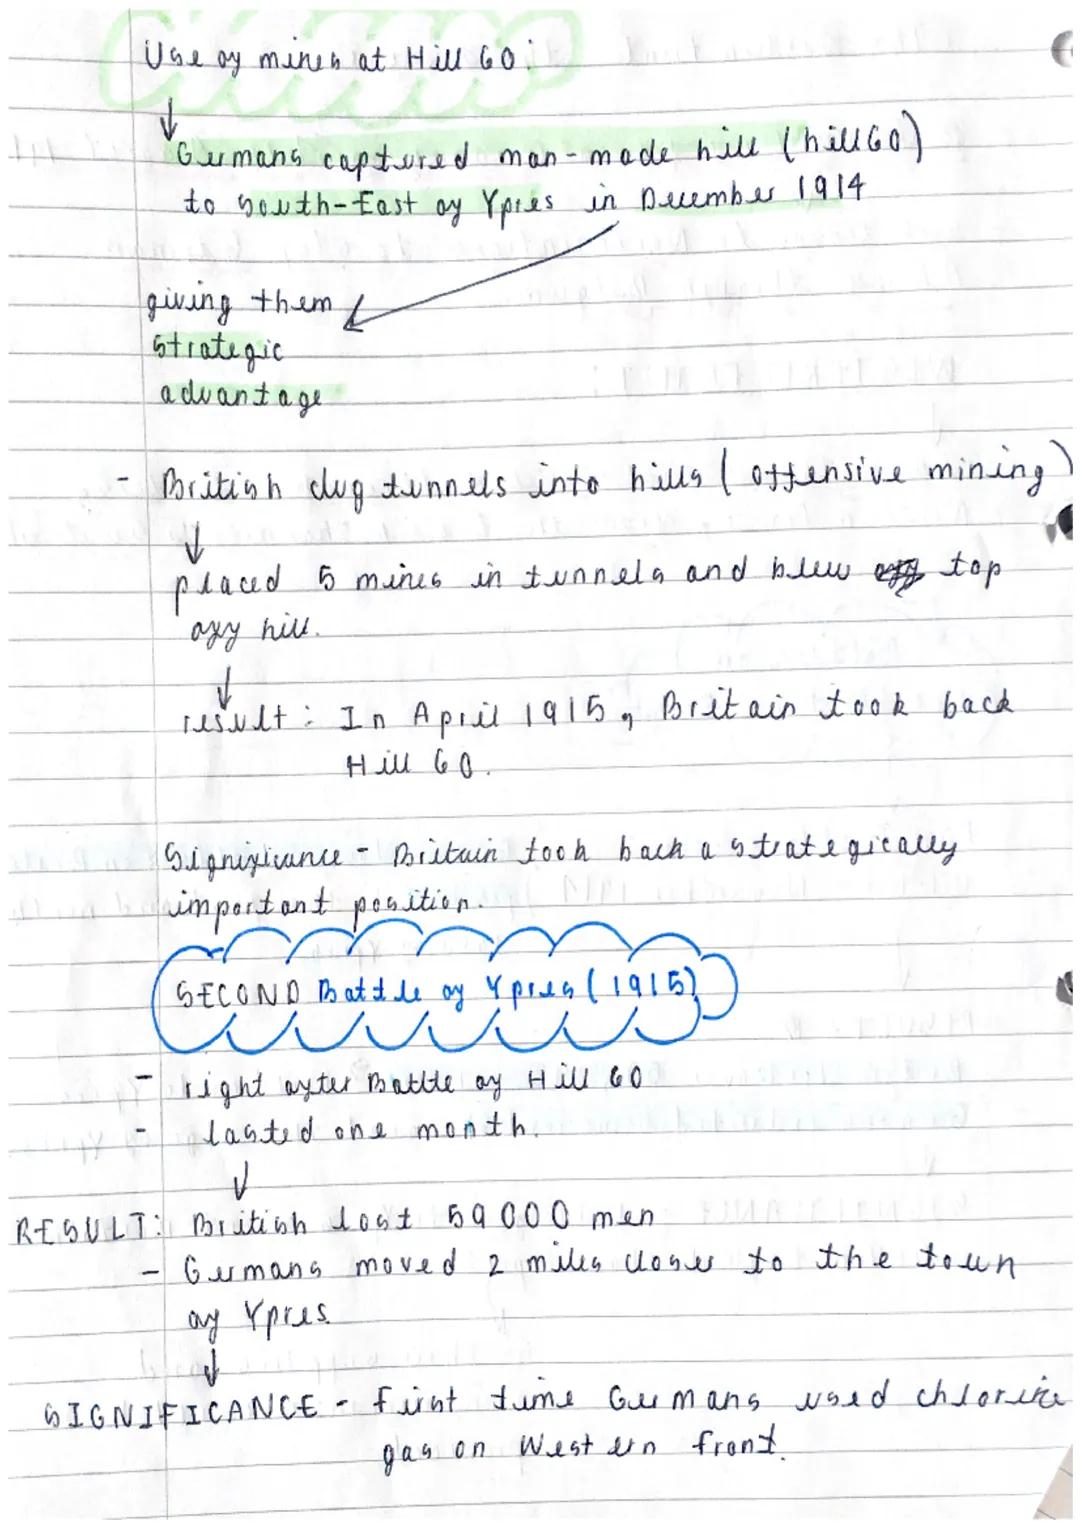 Use of mines at Hill 60:
↓
Germans captured man-made hill (hill 60)
to South-East of Ypres in December 1914
giving them
strategic
advantage
- British dug tunnels into hills (offensive mining)
↓
placed 5 mines in tunnels and blew top
off hill.
↓
result: In April 1915, Britain took back
Hill 60.
Significance - Britain took back a strategically
important position.
SECOND Battle of Ypres (1915)
- right after Battle of Hill 60
- lasted one month.
↓
RESULT: British lost 59000 men
- Germans moved 2 miles closer to the town
of Ypres.
↓
SIGNIFICANCE - first time Germans used chlorine
gas on Western front.